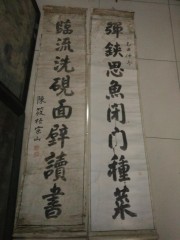 彈鋏思魚閉门種菜
臨流洗硯面壁讀書